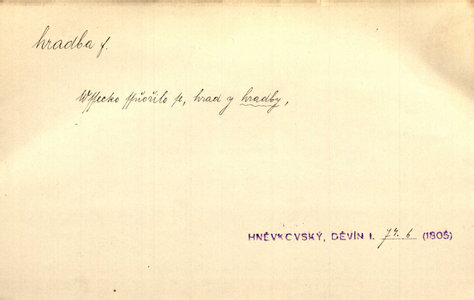 hradba f.
Wssecko sstiořilo se, hrad y hradby,
HNĚVKOVSKÝ, DĚVÍN I. 77. 6 (1805)